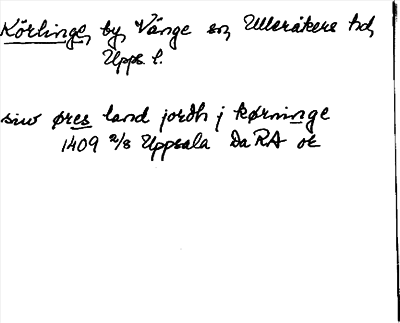 Körlinge, by, Vänge sn, Ulleråkers hd,
Upps. l.
siw øres land jordh j kørninge
1409 2/8 Uppsala Da RA or